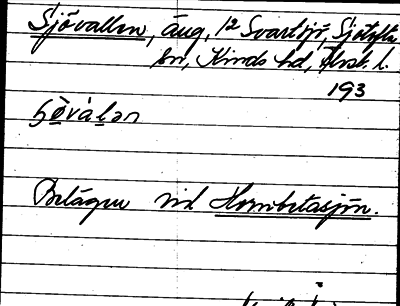 Sjövallen, äng, 1/2 Svartsjö, Sjötofta
sn, Kinds hd, Älvsb. l.
193
Belägen vid Hornbetasjön.